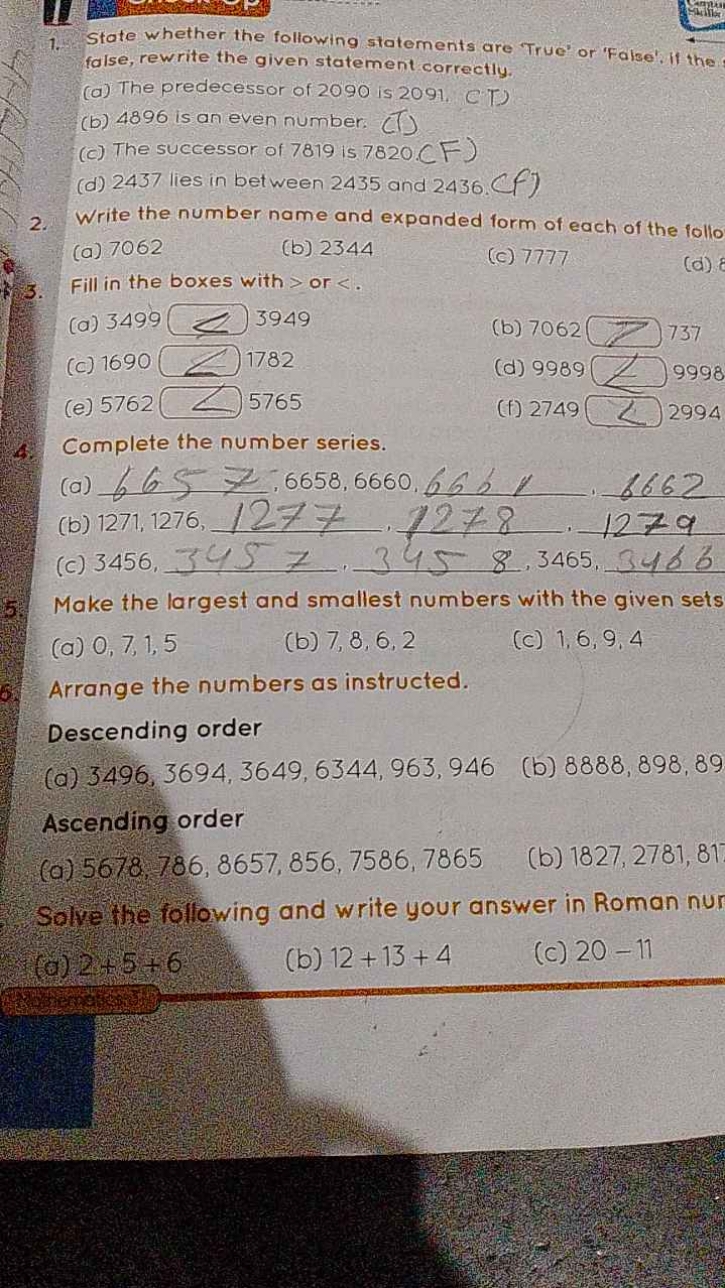 1. State whether the following statements are 'True' or 'False', if the
false, rewrite the given statement correctly.
(a) The predecessor of 2090 is 2091. (T)
(b) 4896 is an even number. (T)
(c) The successor of 7819 is 7820. (F)
(d) 2437 lies in between 2435 and 2436. (F)
2. Write the number name and expanded form of each of the follo
(a) 7062 (b) 2344 (c) 7777 (d)
3. Fill in the boxes with > or < .
(a) 3499 < 3949 (b) 7062 > 737
(c) 1690 < 1782 (d) 9989 < 9998
(e) 5762 < 5765 (f) 2749 < 2994
4. Complete the number series.
(a) 6657, 6658, 6660, 6661, 6662
(b) 1271, 1276, 1277, 1278, 1279
(c) 3456, 3457, 3458, 3465, 3466
5. Make the largest and smallest numbers with the given sets
(a) 0, 7, 1, 5 (b) 7, 8, 6, 2 (c) 1, 6, 9, 4
6. Arrange the numbers as instructed.
Descending order
(a) 3496, 3694, 3649, 6344, 963, 946 (b) 8888, 898, 89
Ascending order
(a) 5678, 786, 8657, 856, 7586, 7865 (b) 1827, 2781, 817
Solve the following and write your answer in Roman nur
(a) 2 + 5 + 6 (b) 12 + 13 + 4 (c) 20 – 11